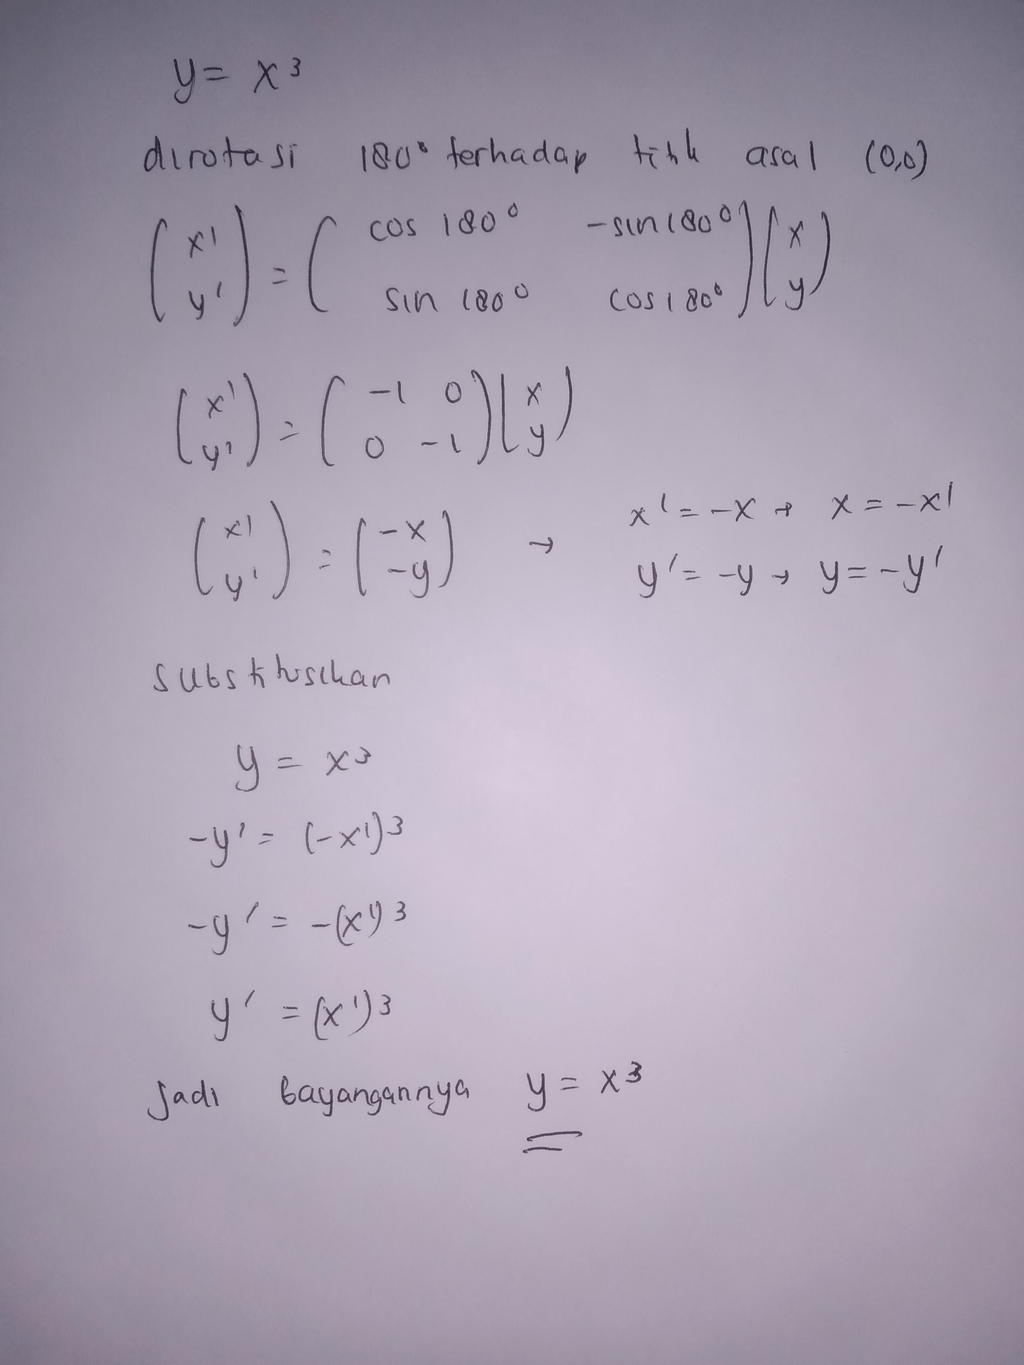 y = x³
dirotasi 180° terhadap titik asal (0,0)
(x' y') = (cos 180° -sin 180° sin 180° cos 180°) (x y)
(x' y') = (-1 0 0 -1) (x y)
(x' y') = (-x -y) → x' = -x → x = -x'
y' = -y → y = -y'
substitusikan
y = x³
-y' = (-x')³
-y' = -(x')³
y' = (x')³
Jadi bayangannya y = x³